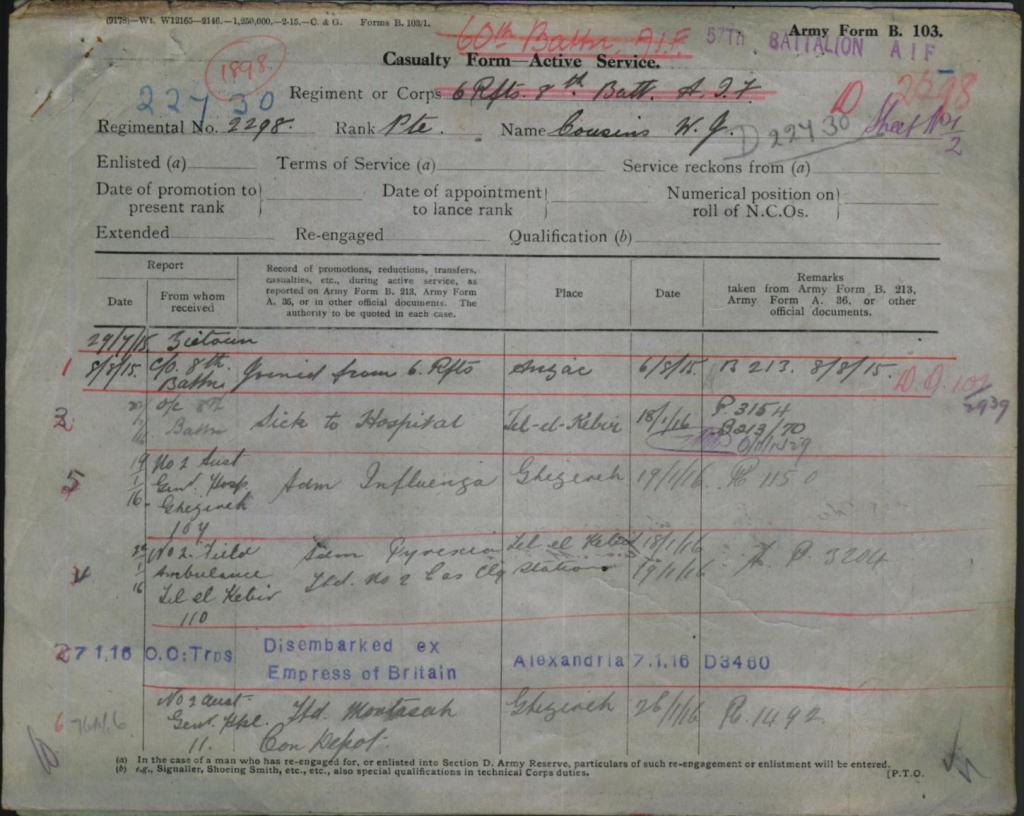 (9178)—Wt. W12165—2146.—1,250,000.—2-15.—C. & G. Forms B. 103/1.
Army Form B. 103.
60th Battn. A.I.F. 57TH BATTALION A I F
Casualty Form—Active Service.
1898
22730
Regiment or Corps 6 Rfts. 8th Batt. A.I.F
D 2298
Regimental No. 2298. Rank Pte. Name Cousins W. J.
D 22730
Sheet No 1
2
Enlisted (a) Terms of Service (a) Service reckons from (a)
Date of promotion to present rank Date of appointment to lance rank Numerical position on roll of N.C.Os.
Extended Re-engaged Qualification (b)
Report
Date
From whom received
Record of promotions, reductions, transfers, casualties, etc., during active service, as reported on Army Form B. 213, Army Form A. 36, or in other official documents. The authority to be quoted in each case.
Place
Date
Remarks
taken from Army Form B. 213, Army Form A. 36, or other official documents.
29/7/15 Zietoun
1 8/8/15. C/O. 8th Battn Joined from 6. Rfts Anzac 6/8/15. B 213. 8/8/15.
3 O/C 8th Battn Sick to Hospital Tel-el-Kebir 18/1/16 P. 3154
B213/70
5 19/1/16 No 2 Aust Genl. Hosp. Ghezireh Adm Influenza Ghezireh 19/1/16 R 1150
104
4 No 2. Field Ambulance Tel el Kebir Adm Pyrexia Tel el Kebir 18/1/16 A. P. 3204
Tfd. No 2 Cas Clg Station 19/1/16
110
2 7 1.16 O.O:Trps Disembarked ex Empress of Britain Alexandria 7.1.16 D3460
6 No 2 Aust Genl. Hpl. Tfd. Montazah Con Depot. Ghezireh 26/1/16 R. 1492
11.
(a) In the case of a man who has re-engaged for, or enlisted into Section D. Army Reserve, particulars of such re-engagement or enlistment will be entered.
(b) e.g., Signaller, Shoeing Smith, etc., etc., also special qualifications in technical Corps duties.
[P.T.O.